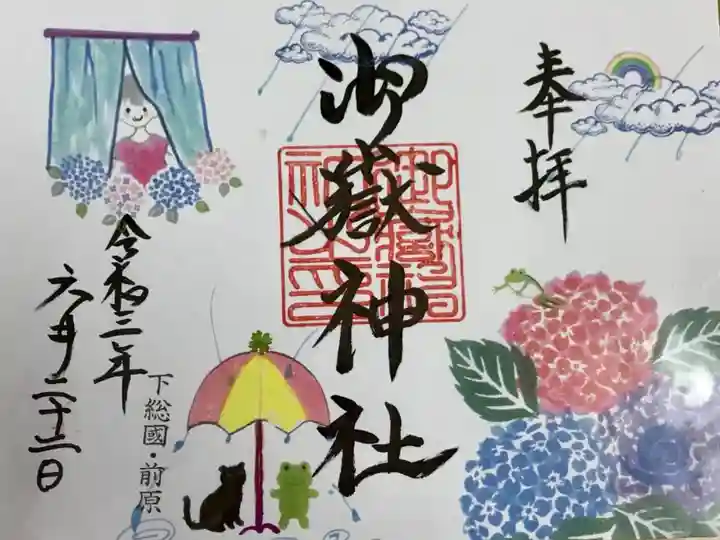 奉拝
御嶽神社
令和三年
六月二十二日
下総國・前原